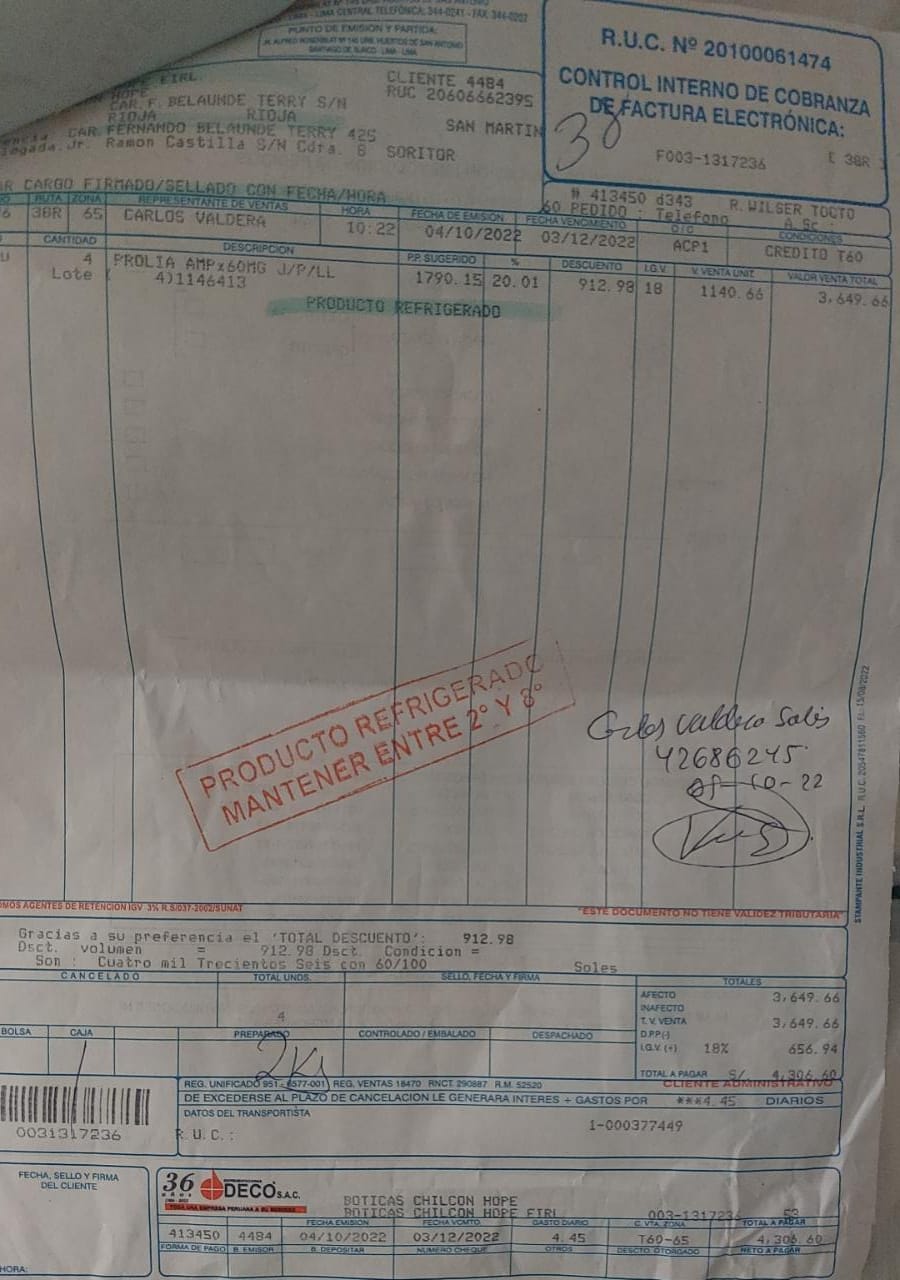 LIMA CENTRAL TELEFÓNICA: 344-0241 - FAX 344-0202
PUNTO DE EMISIÓN Y PARTIDA:
SANTIAGO DE SURCO - LIMA - LIMA
R.U.C. Nº 20100061474
CONTROL INTERNO DE COBRANZA
DE FACTURA ELECTRÓNICA:
30
F003-1317236 [ 38R ]
HOPE EIRL
HOPE
CAR. F. BELAUNDE TERRY S/N
RIOJA RIOJA
CLIENTE 4484
RUC 20606662395
CAR. FERNANDO BELAUNDE TERRY 425 SAN MARTIN
Jr. Ramon Castilla S/N Cdra. 8 SORITOR
CARGO FIRMADO/SELLADO CON FECHA/HORA
# 413450 d343 R.WILSER TOCTO
60 PEDIDO : Telefono A Sc :
RUTA ZONA REPRESENTANTE DE VENTAS HORA FECHA DE EMISIÓN FECHA VENCIMIENTO O/C CONDICIONES
38R 65 CARLOS VALDERA 10:22 04/10/2022 03/12/2022 ACP1 CREDITO T60
CANTIDAD DESCRIPCION P.P. SUGERIDO % DESCUENTO I.G.V. V. VENTA UNIT. VALOR VENTA TOTAL
4 PROLIA AMPx60MG J/P/LL 1790.15 20.01 912.98 18 1140.66 3,649.66
Lote ( 4)1146413
PRODUCTO REFRIGERADO
PRODUCTO REFRIGERADO
MANTENER ENTRE 2° Y 8°
42686245
STAMPANTE INDUSTRIAL S.R.L. R.U.C. 20547811560 F.I. 15/08/2022
AGENTES DE RETENCION IGV 3% R.S/037-2002/SUNAT
"ESTE DOCUMENTO NO TIENE VALIDEZ TRIBUTARIA"
Gracias a su preferencia el 'TOTAL DESCUENTO': 912.98
Dsct. volumen = 912.98 Dsct. Condicion =
Son : Cuatro mil Trecientos Seis con 60/100 Soles
CANCELADO TOTAL UNDS. SELLO, FECHA Y FIRMA TOTALES
4
AFECTO 3,649.66
INAFECTO
T. V. VENTA 3,649.66
D.P.P.(-)
I.G.V. (+) 18% 656.94
TOTAL A PAGAR S/. 4,306.60
BOLSA CAJA PREPARADO CONTROLADO / EMBALADO DESPACHADO
REG. UNIFICADO 951 - 6577-001 REG. VENTAS 18470 RNCT. 290887 R.M. 52520
CLIENTE ADMINISTRATIVO
DE EXCEDERSE AL PLAZO DE CANCELACION LE GENERARA INTERES + GASTOS POR ***4.45 DIARIOS
DATOS DEL TRANSPORTISTA
R.U.C.: 1-000377449
0031317236
FECHA, SELLO Y FIRMA
DEL CLIENTE
HORA:
36 años
DECO S.A.C.
BOTICAS CHILCON HOPE
BOTICAS CHILCON HOPE EIRL 003-1317236 53
FECHA EMISION FECHA VCMTO GASTO DIARIO C. VTA. ZONA TOTAL A PAGAR
413450 4484 04/10/2022 03/12/2022 4.45 T60-65 4,306.60
FORMA DE PAGO B. EMISOR B. DEPOSITAR NUMERO CHEQUE OTROS DESCTO. OTORGADO NETO A PAGAR